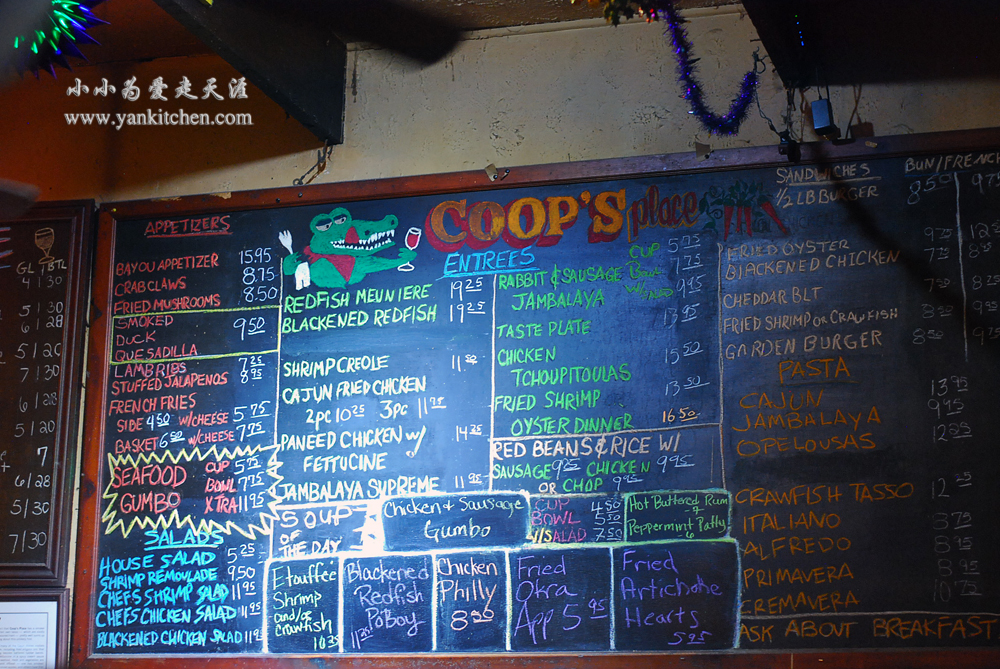 小小为爱走天涯
www.yankitchen.com
COOP'S place
APPETIZERS
BAYOU APPETIZER 15.95
CRAB CLAWS 8.75
FRIED MUSHROOMS 8.50
SMOKED
DUCK 9.50
QUESADILLA
LAMB RIBS 7.25
STUFFED JALAPENOS 8.95
FRENCH FRIES
SIDE 4.50 W/CHEESE 5.75
BASKET 6.00 W/CHEESE 7.75
SEAFOOD CUP 5.75
GUMBO BOWL 7.75
XTRA 11.95
SALADS
HOUSE SALAD 5.25
SHRIMP REMOULADE 9.50
CHEFS SHRIMP SALAD 11.95
CHEFS CHICKEN SALAD 11.95
BLACKENED CHICKEN SALAD
ENTREES
REDFISH MEUNIERE 19.25
BLACKENED REDFISH 19.25
SHRIMP CREOLE 11.50
CAJUN FRIED CHICKEN
2pc 10.25 3pc 11.75
PANEED CHICKEN W/ 14.35
FETTUCINE
JAMBALAYA SUPREME 11.95
SOUP
OF
THE DAY
Chicken & Sausage
Gumbo
CUP 4.50
BOWL 5.50
W/SALAD 7.50
Hot Buttered Rum
4
Peppermint Patty
6
RABBIT & SAUSAGE CUP 5.75
JAMBALAYA BOWL 7.75
9.95
TASTE PLATE 13.95
CHICKEN 15.50
TCHOUPITOULAS
FRIED SHRIMP 13.50
OYSTER DINNER 16.50
RED BEANS & RICE W/
SAUSAGE 9.25 CHICKEN 9.95
OR CHOP 9.95
Etouffée
Shrimp
and/or
Crawfish
10.35
Blackened
Redfish
Po Boy
11.35
Chicken
Philly
8.50
Fried
Okra
App 5.95
Fried
Artichoke
Hearts
5.95
SANDWICHES BUN/FRENCH
1/2 LB BURGER 8.50
FRIED OYSTER
BLACKENED CHICKEN
CHEDDAR BLT
FRIED SHRIMP OR CRAWFISH
GARDEN BURGER
PASTA
CAJUN 13.95
JAMBALAYA 9.95
OPELOUSAS 12.95
CRAWFISH TASSO
ITALIANO 8.75
ALFREDO 8.95
PRIMAVERA 8.95
CREMAVERA 10.75
ASK ABOUT BREAKFAST